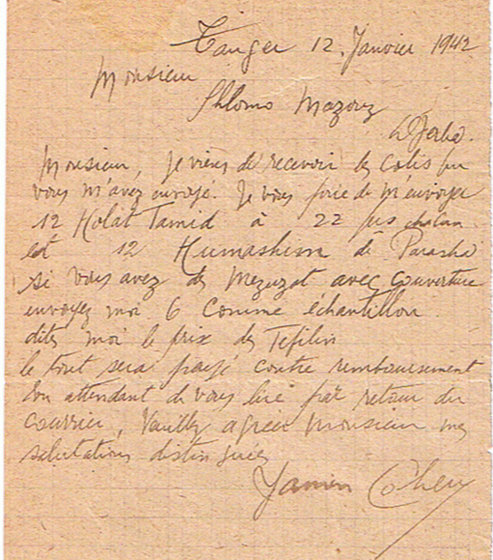 Tanger 12. Janvier 1942
Monsieur
Shlomo Mazouz
Djerba.
Monsieur, Je viens de recevoir les colis que
vous m'avez envoyé. Je vous prie de m'envoyer
12 Holat Tamid à 22 frs chacun
et 12 Humashim de Parasha
si vous avez des Mezuzot avec couverture
envoyez moi 6 comme échantillon
dites moi le prix des Tefilin
le tout sera payé contre remboursement
En attendant de vous lire par retour du
courrier, Veuillez agréer Monsieur mes
salutations distinguées
Yamin Cohen